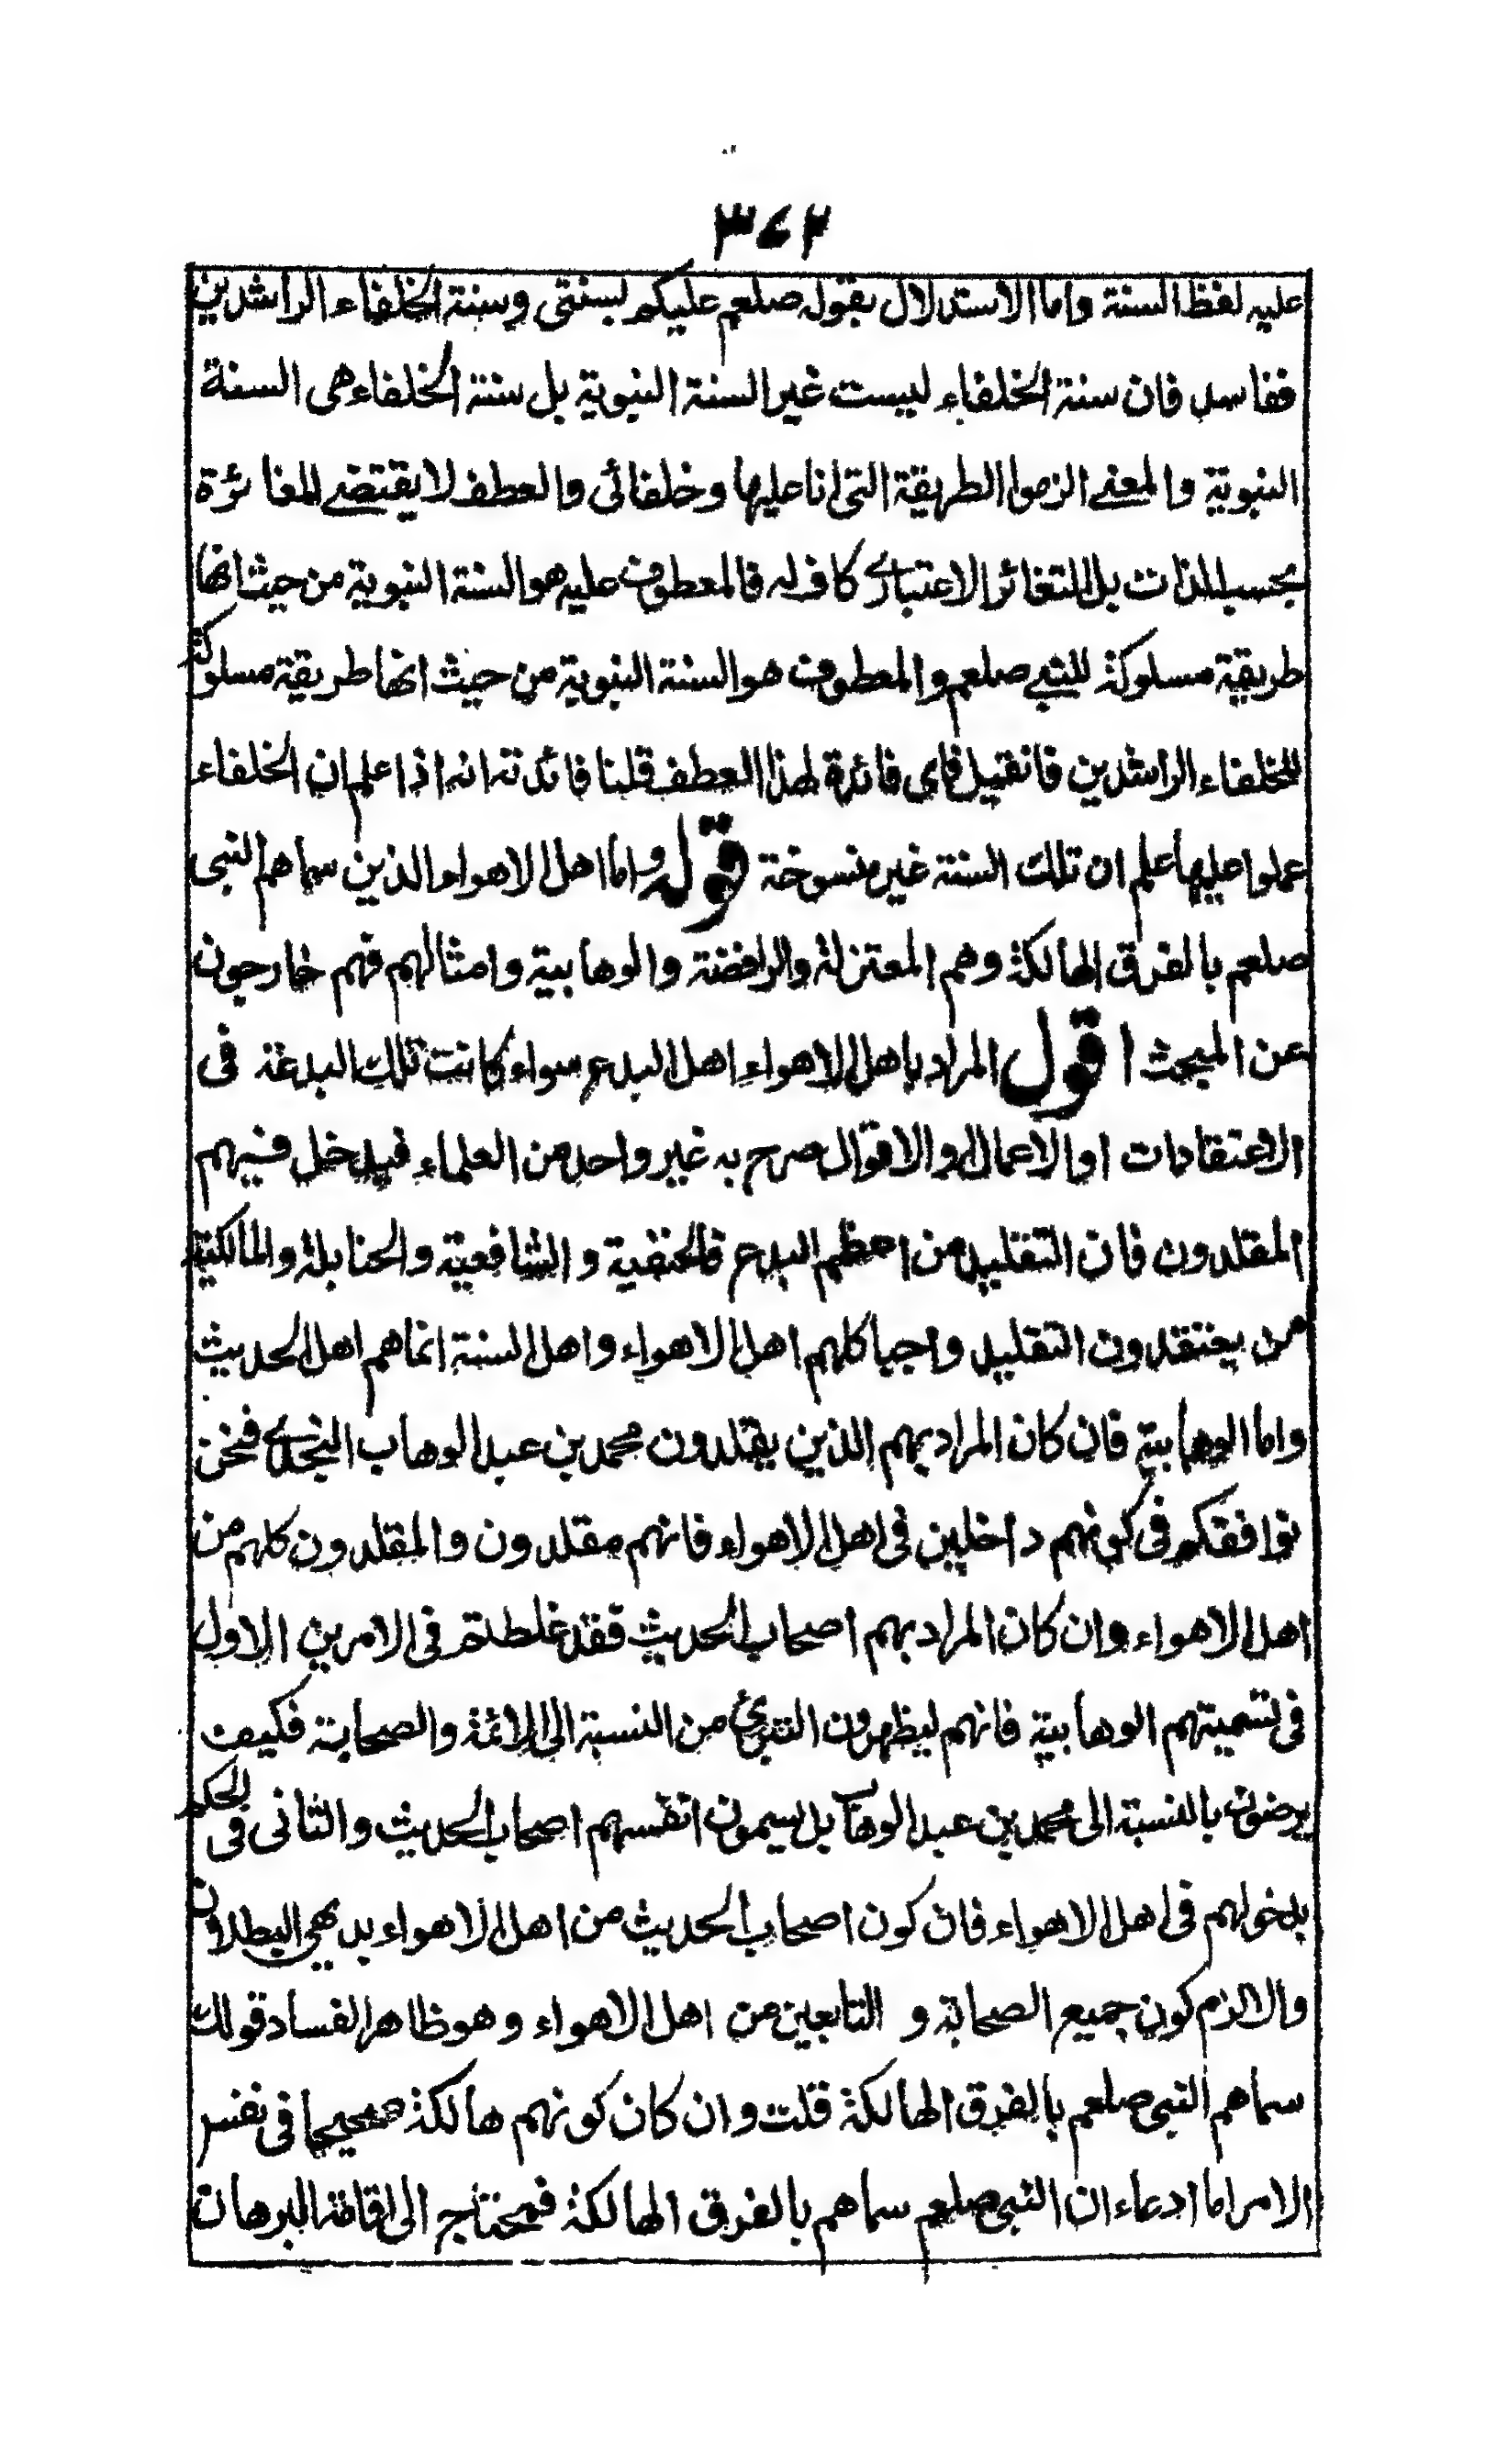 ۳۷۲
عليه لفظ السنة واما الاستدلال بقوله صلعم عليكم بسنتي وسنة الخلفاء الراشدين
ففاسد فان سنة الخلفاء ليست غير السنة النبوية بل سنة الخلفاء هى السنة
النبوية والمعنے الزموا الطريقة التى انا عليها وخلفائى والعطف لا يقتضے المغائرة
بحسب الذات بل التغائر الاعتبارى كاف له فالمعطوف عليه هو السنة النبوية من حيث انها
طريقة مسلوكة للنبے صلعم والمعطوف هو السنة النبوية من حيث انها طريقة مسلوكة
للخلفاء الراشدين فان قيل فاى فائدة لهذا العطف قلنا فائدته انه اذا علم ان الخلفاء
عملوا عليها علم ان تلك السنة غير منسوخة قوله واما اهل الاهواء الذين سماهم النبى
صلعم بالفرق الهالكة وهم المعتزلة والرافضة والوهابية وامثالهم فهم خارجون
عن المبحث اقول المراد باهل الاهواء اهل البدع سواء كانت تلك البدعة فى
الاعتقادات او الاعمال او الاقوال صرح به غير واحد من العلماء فيدخل فيهم
المقلدون فان التقليد من اعظم البدع فالحنفية والشافعية والحنابلة والمالكية
من يعتقدون التقليد واجبا كلهم اهل الاهواء واهل السنة انما هم اهل الحديث
واما الوهابية فان كان المراد بهم الذين يقلدون محمد بن عبد الوهاب النجدى فنحن
نوافقكم فى كونهم داخلين فى اهل الاهواء فانهم مقلدون والمقلدون كلهم من
اهل الاهواء وان كان المراد بهم اصحاب الحديث فقد غلطتم فى الامرين الاول
فى تسميتهم الوهابية فانهم ليظهرون التبرئ من النسبة الى الائمة والصحابة فكيف
يرضون بالنسبة الى محمد بن عبد الوهاب بل يسمون انفسهم اصحاب الحديث والثانى فى الحكم
بدخولهم فى اهل الاهواء فان كون اصحاب الحديث من اهل الاهواء بديهى البطلان
والا لزم كون جميع الصحابة و التابعين من اهل الاهواء وهو ظاهر الفساد قولك
سماهم النبى صلعم بالفرق الهالكة قلت وان كان كونهم هالكة صحيحا فى نفس
الامر اما ادعاء ان النبى صلعم سماهم بالفرق الهالكة فمحتاج الى اقامة البرهان